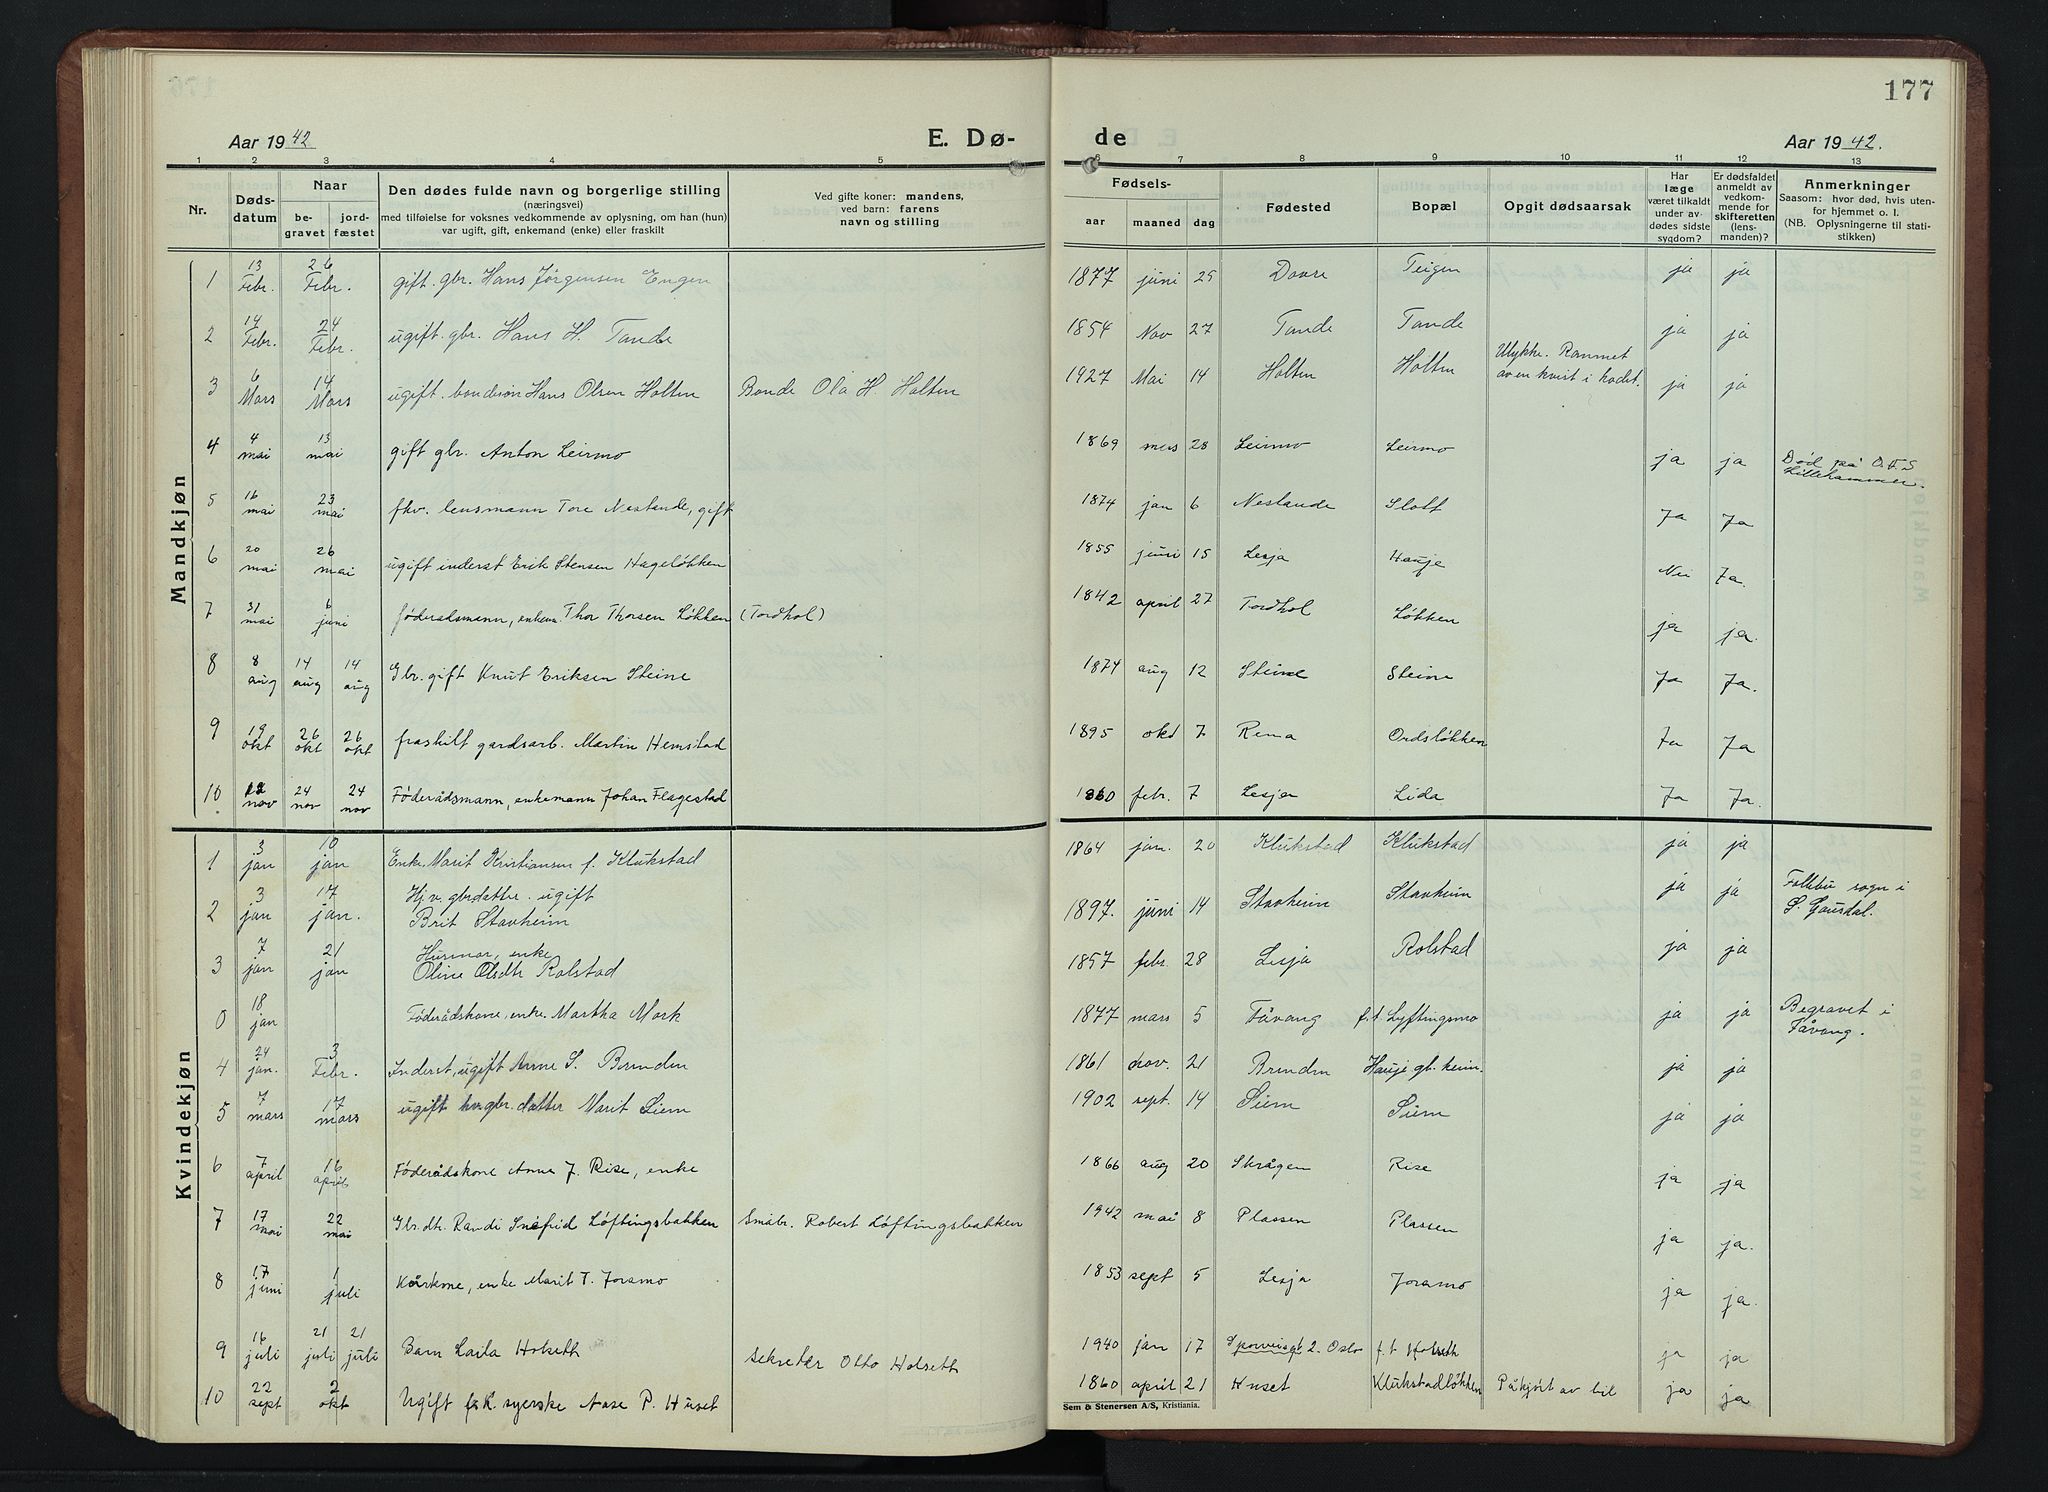 177
Aar 1942
E. Dø-
de
Aar 1942.
1 2 3 4 5 6 7 8 9 10 11 12 13
Nr.
Døds-
datum
Naar
be-
gravet
jord-
fæstet
Den dødes fulde navn og borgerlige stilling
(næringsvei)
med tilføielse for voksnes vedkommende av oplysning, om han (hun)
var ugift, gift, enkemand (enke) eller fraskilt
Ved gifte koner: mandens,
ved barn: farens
navn og stilling
Fødsels-
aar maaned dag
Fødested
Bopæl
Opgit dødsaarsak
Har
læge
været tilkaldt
under av-
dødes sidste
sygdom?
Er dødsfaldet
anmeldt av
vedkom-
mende for
skifteretten
(lens-
manden)?
Anmerkninger
Saasom: hvor død, hvis uten-
for hjemmet o. l.
(NB. Oplysningerne til stati-
stikken)
Mandkjøn
1 13 Febr. 26 Febr. gift. gbr. Hans Jørgensen Engen 1877 juni 25 Dovre Teigen ja ja
2 14 Febr. 24 Febr. ugift. gbr. Hans H. Tande 1854 Nov 27 Tande Tande ja ja
3 6 Mars 14 Mars ugift. bondesøn Hans Olsen Holten Bonde Ola H. Holten 1927 Mai 14 Holten Holten Ulykke. Rammet
av en kvist i hodet. ja ja
4 4 mai 13 mai gift gbr. Anton Leirmo 1869 mars 28 Leirmo Leirmo ja ja Død på O.F.S
Lillehammer.
5 16 mai 23 mai fhv. lensmann Tore Neslande, gift 1874 jan 6 Neslande Slott Ja Ja
6 20 mai 26 mai ugift inderst Erik Stensen Hageløkken 1855 juni 15 Lesja Hauje Nei Ja.
7 31 mai 6 juni føderadsmann, enkem. Thor Thorsen Løkken (Tordhol) 1842 april 27 Tordhol Løkken ja ja.
8 8 aug 14 aug 14 aug Gbr. gift Knut Eriksen Steine 1874 aug 12 Steine Steine Ja Ja.
9 19 okt 26 okt 26 okt fraskilt gardsarb. Martin Hemstad 1895 okt 7 Rena Ordsløkken Ja Ja
10 nov 24 nov 24 nov Føderådsmann, enkemann Johan Flagestad 1860 febr. 7 Lesja Lida Ja Ja.
Kvindekjøn
1 3 jan 10 jan Enke. Marit Kristiansen f. Klukstad 1864 jan. 20 Klukstad Klukstad ja ja
2 3 jan 17 jan. Hjv. gbrdatter. ugift
Brit Stavheim 1897. juni 14 Stavheim Stavheim ja ja Follebu sogn i
S. Gausdal.
3 7 jan 21 jan Husmor, enke
Oline Olsdtr Rolstad 1857 febr. 28 Lesja Rolstad ja ja
0 18 jan Føderådskone, enke. Martha Mork 1877 mars 5 Fåvang f.t. Lyftingsmo ja ja Begravet i
Fåvang.
4 24 jan. 3 Febr. Inderst, ugift Anne S. Brenden 1861 nov. 21 Brenden Hauje gl. heim. ja ja
5 7 mars 17 mars ugift hv. gbr. datter Marit Siem 1902 sept. 14 Siem Siem ja ja
6 7 april 16 april Føderådskone Anne J. Rise, enke 1866 aug 20 Skrågen Rise ja ja
7 17 mai 22 mai Gbr. dtr. Randi Snefrid Løftingsbakken Småbr. Robert Løftingsbakken 1942 mai 8 Plassen Plassen ja ja.
8 17 juni 1 juli Kårkone, enke Marit T. Joramo 1853 sept 5 Lesja Joramo ja ja.
9 16 juli 21 juli 21 juli Barn Laila Holseth sekretær Otto Holseth 1940 jan 17 Sporveisgt 2. Oslo f.t Holseth ja ja
10 22 sept 2 okt Ugift syerske Aase P. Huset 1860 april 21 Huset Klukstadløkken Påkjørt av bil ja ja
Sem & Stenersen A/S, Kristiania.